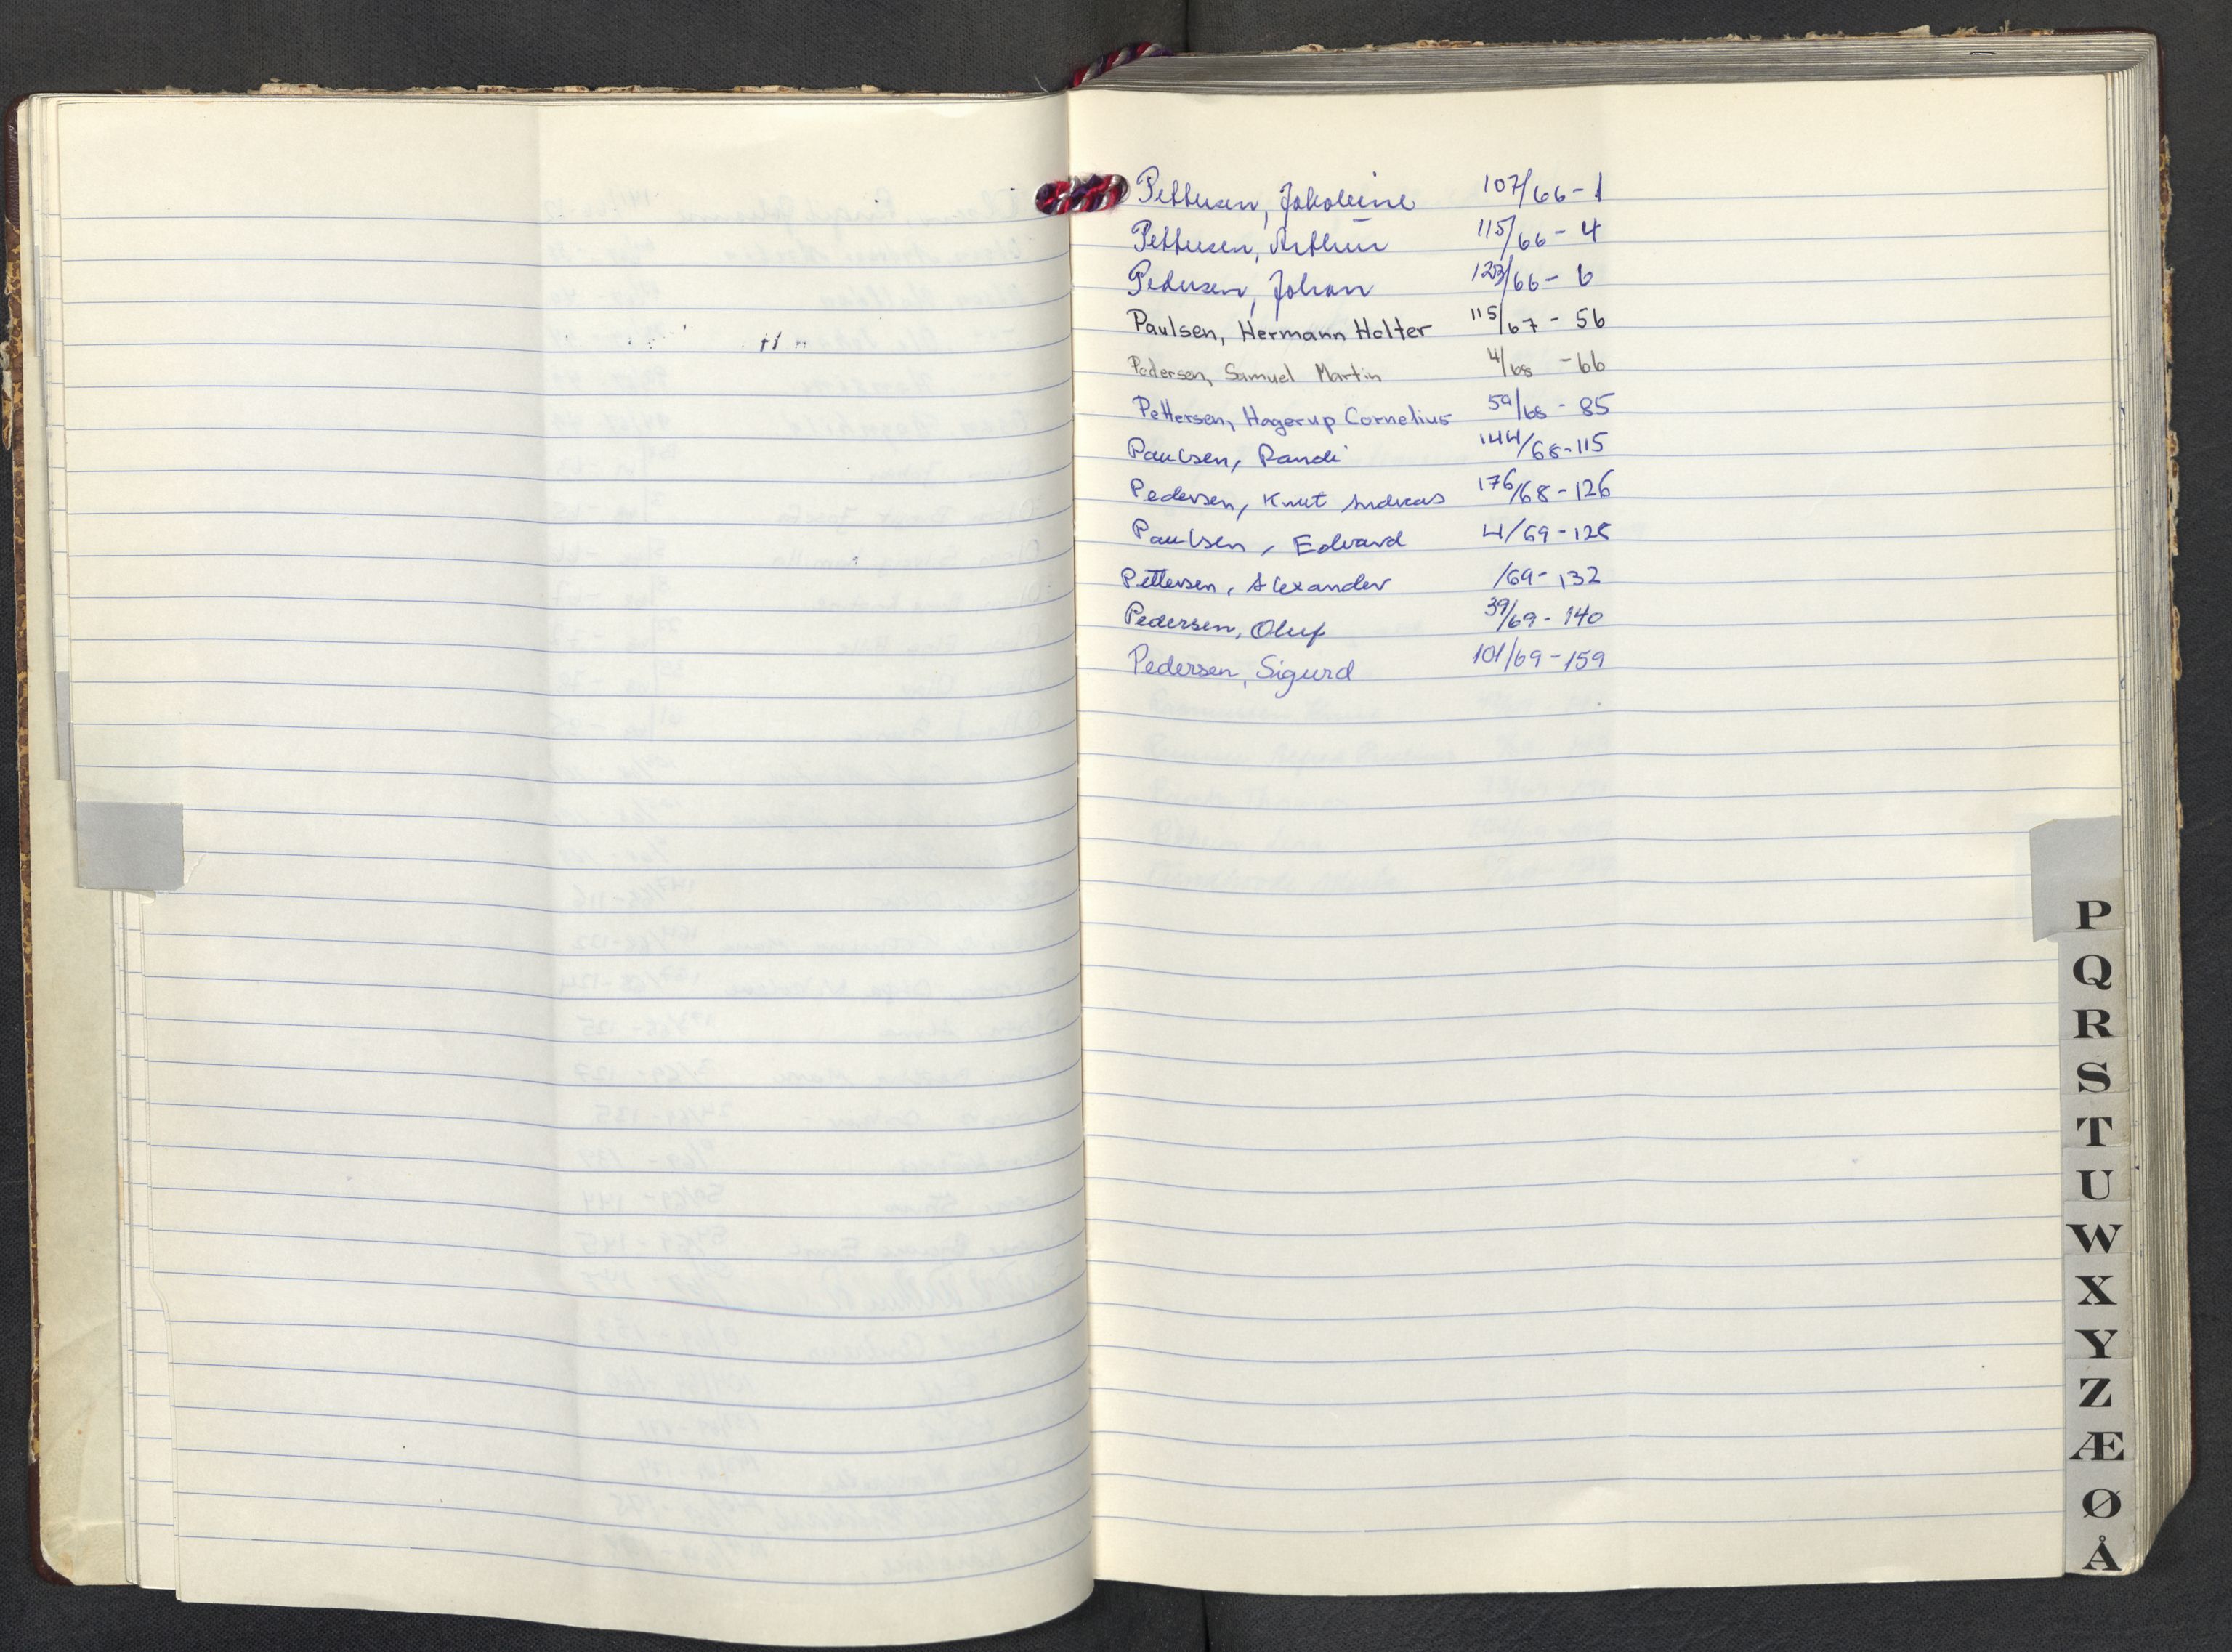 Pettersen, Jakobine 107/66 - 1
Pettersen, Arthur 115/66 - 4
Pedersen, Johan 123/66 - 6
Paulsen, Hermann Holter 115/67 - 56
Pedersen, Samuel Martin 4/68 - 66
Pettersen, Hagerup Cornelius 59/68 - 85
Paulsen, Randi 144/68 - 115
Pedersen, Knut Andreas 176/68 - 126
Paulsen, Edvard 4/69 - 128
Pettersen, Alexander /69 - 132
Pedersen, Oluf 39/69 - 140
Pedersen, Sigurd 101/69 - 159
P
Q
R
S
T
U
W
X
Y
Z
Æ
Ø
Å